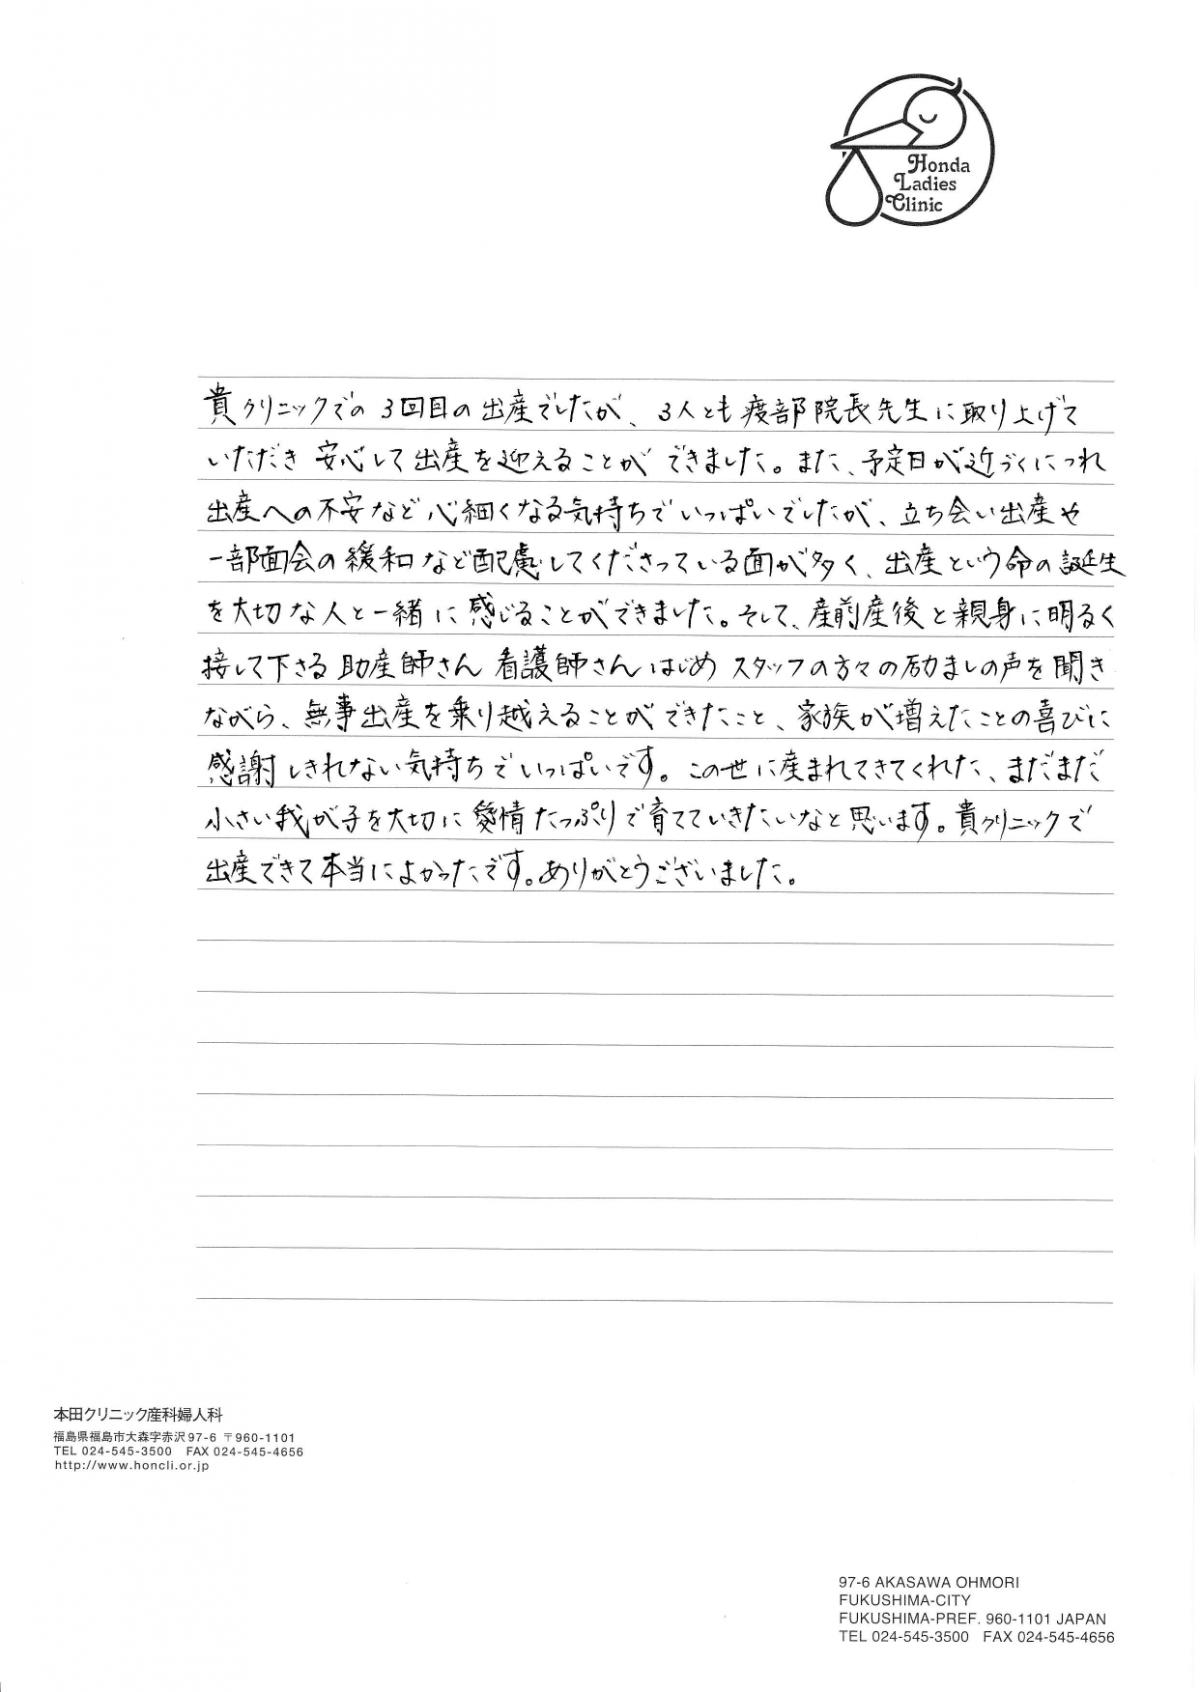 Honda
Ladies
Clinic
貴クリニックでの3回目の出産でしたが、3人とも疫部院長先生に取り上げて
いただき安心して出産を迎えることができました。また、予定日が近づくにつれ
出産への不安など心細くなる気持ちでいっぱいでしたが、立ち会い出産や
一部面会の緩和など配慮してくださっている面が多く、出産という命の誕生
を大切な人と一緒に感じることができました。そして、産前産後と親身に明るく
接して下さる助産師さん看護師さんはじめスタッフの方々の励ましの声を聞き
ながら、無事出産を乗り越えることができたこと、家族が増えたことの喜びに
感謝しきれない気持ちでいっぱいです。この世に産まれてきてくれた、まだまだ
小さい我が子を大切に愛情たっぷりで育てていきたいなと思います。貴クリニックで
出産できて本当によかったです。ありがとうございました。
本田クリニック産科婦人科
福島県福島市大森字赤沢97-6 〒960-1101
TEL 024-545-3500 FAX 024-545-4656
http://www.honcli.or.jp
97-6 AKASAWA OHMORI
FUKUSHIMA-CITY
FUKUSHIMA-PREF. 960-1101 JAPAN
TEL 024-545-3500 FAX 024-545-4656